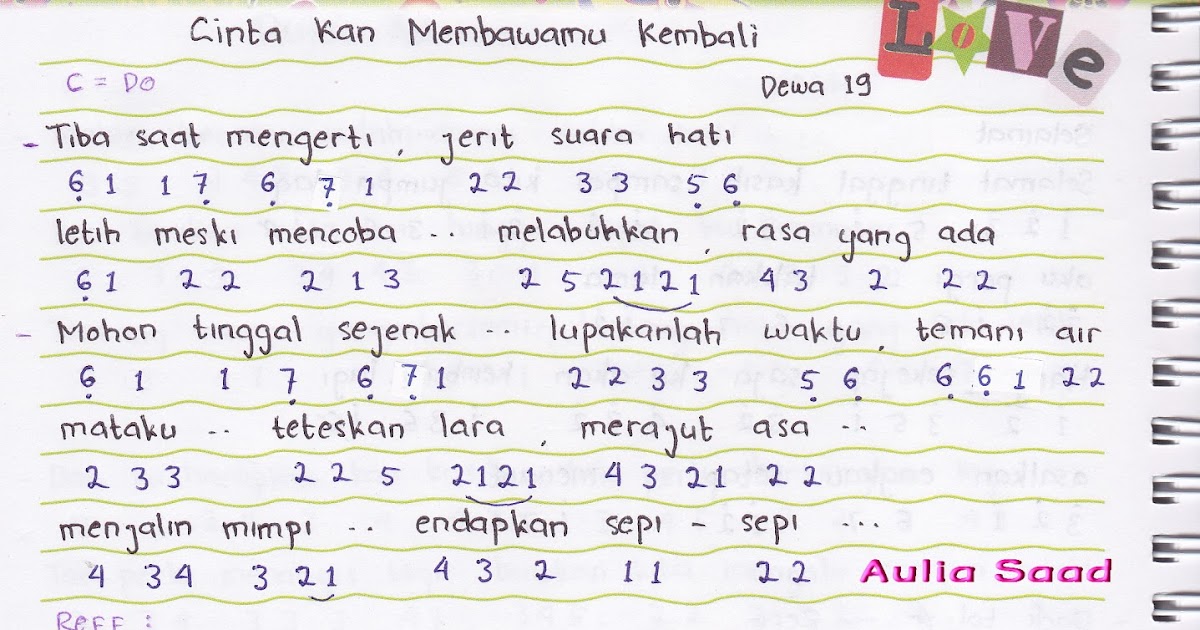 Cinta Kan Membawamu Kembali
LOVe
C = DO
Dewa 19
- Tiba saat mengerti, jerit suara hati
6̣ 1 1 7̣ 6̣ 7̣ 1 2 2 3 3 5̣ 6̣
letih meski mencoba .. melabuhkan, rasa yang ada
6̣ 1 2 2 2 1 3 2 5 2 1 2 1 4 3 2 2 2
- Mohon tinggal sejenak lupakanlah waktu, temani air
6̣ 1 1 7̣ 6̣ 7̣ 1 2 2 3 3 5̣ 6̣ 6̣ 6̣ 1 2 2
mataku .. teteskan lara, merajut asa ..
2 3 3 2 2 5 2 1 2 1 4 3 2 1 2 2
menjalin mimpi .. endapkan sepi - sepi ..
4 3 4 3 2 1 4 3 2 1 1 2 2
Aulia Saad
Reff :